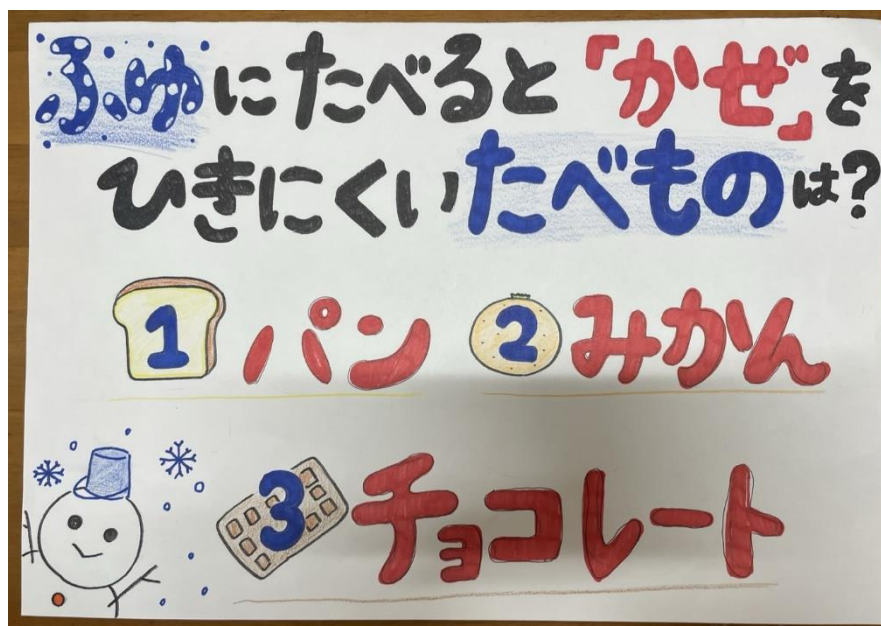 ふゆにたべると「かぜ」を
ひきにくいたべものは?
1 パン 2 みかん
3 チョコレート